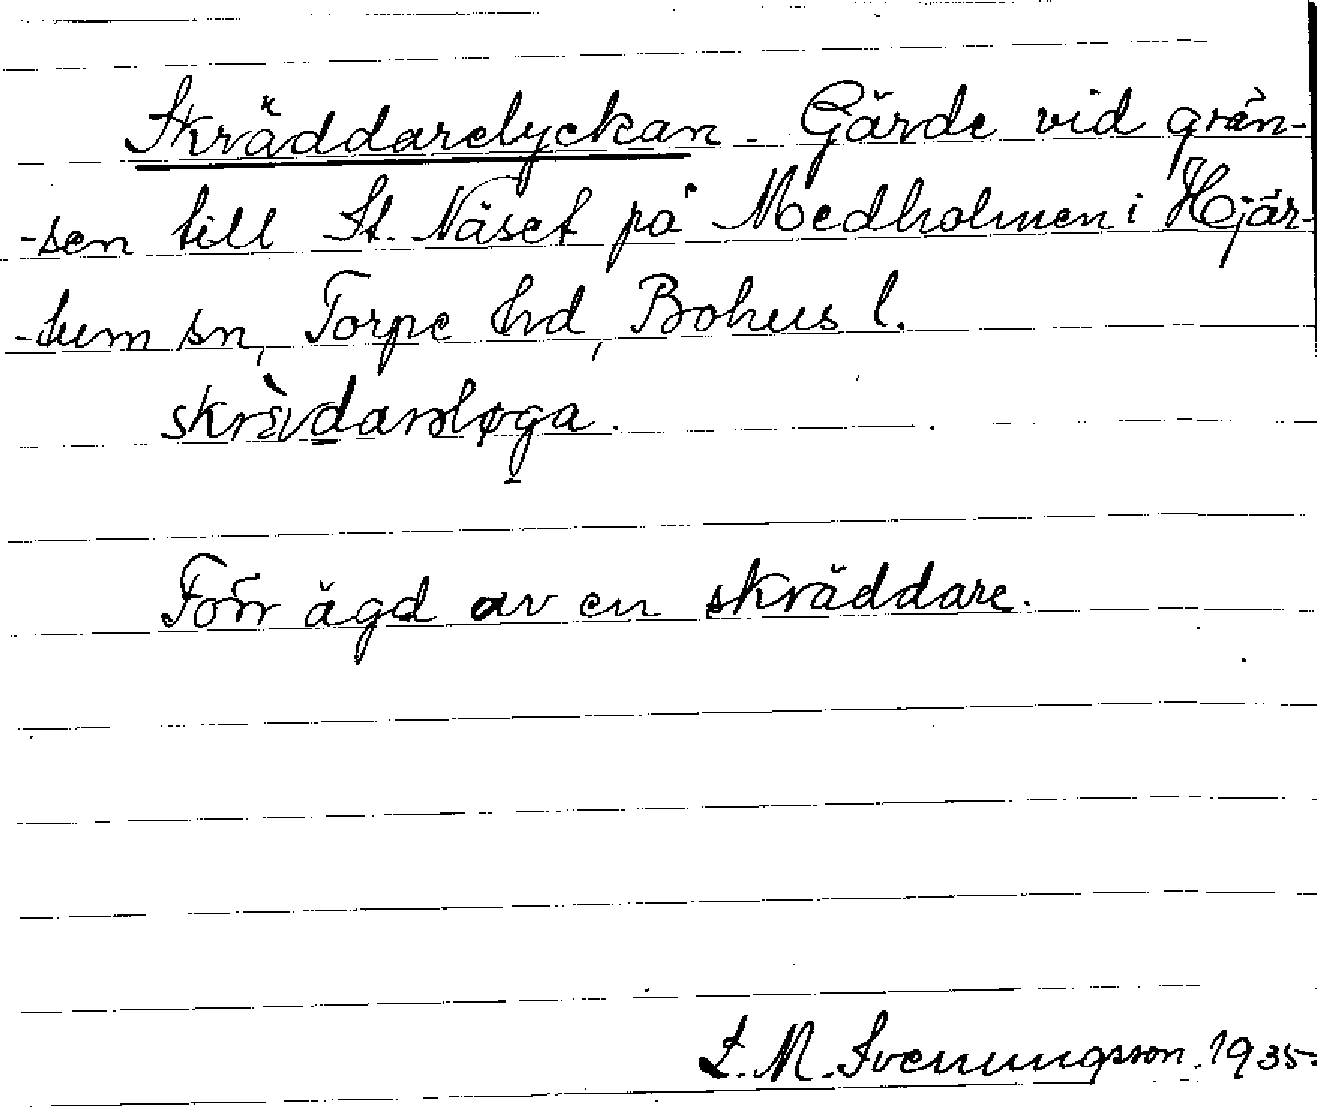 Skräddarelyckan. Gärde vid grän-
-sen till St. Näset på Medholmen i Hjär-
-tum sn, Torpe hd, Bohus l.
Förr ägd av en skräddare.
L. M. Svenungsson. 1935.